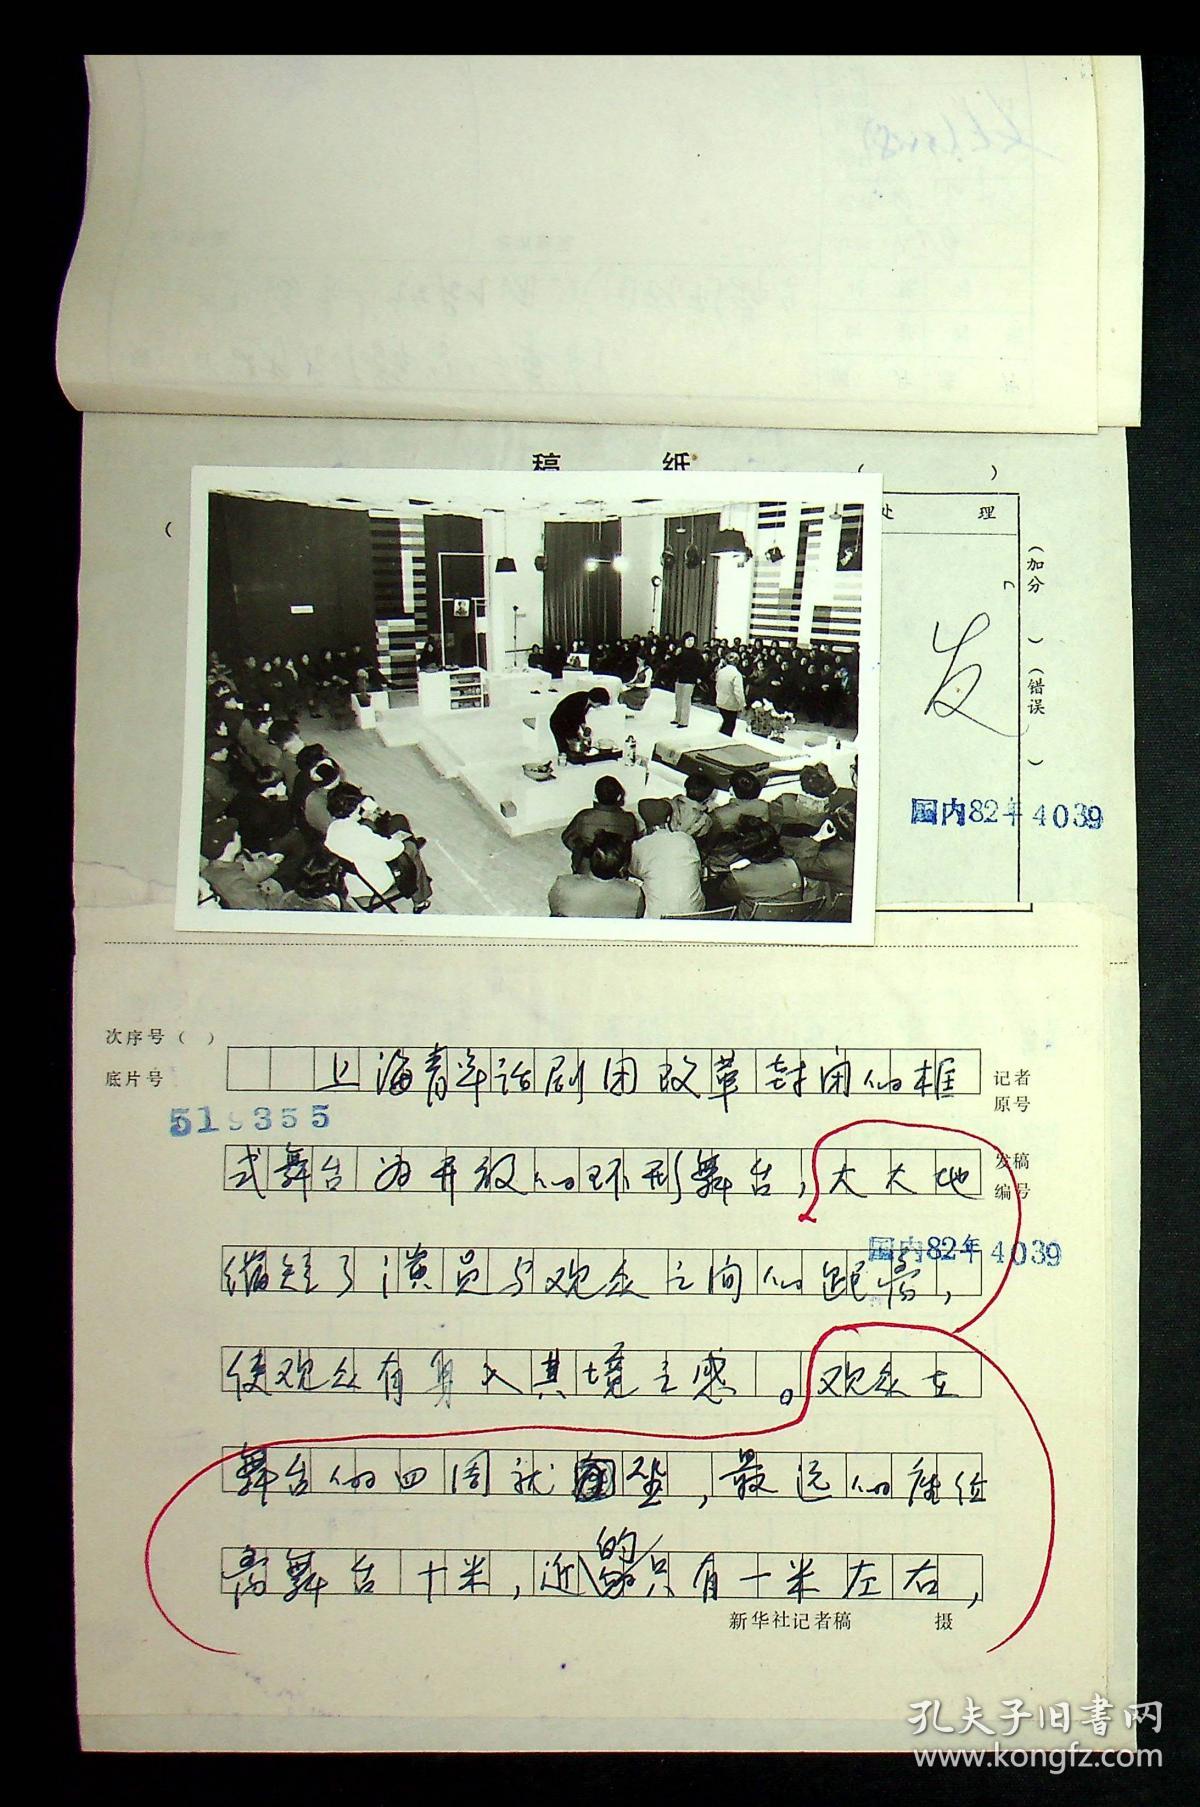 稿 纸
( )
(
处 理
(加分 )(错误 )
发
国内82年4039
次序号( )
底片号
519355
记者
原号
上海青年话剧团改革封闭的框
式舞台为开放的环形舞台,大大地
发稿
编号
国内82年4039
缩短了演员与观众之间的距离,
使观众有身入其境之感。观众在
舞台的四周就坐,最远的座位
离舞台十米,近的只有一米左右,
新华社记者稿 摄
孔夫子旧书网
www.kongfz.com